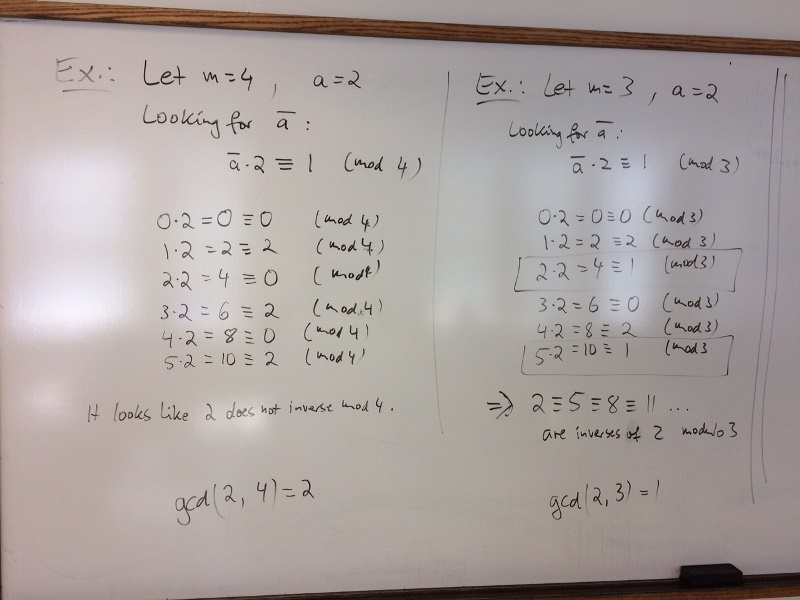 Ex.: Let m=4 , a=2
Looking for a̅ :
a̅·2 ≡ 1 (mod 4)
0·2 = 0 ≡ 0 (mod 4)
1·2 = 2 ≡ 2 (mod 4)
2·2 = 4 ≡ 0 (mod 4)
3·2 = 6 ≡ 2 (mod 4)
4·2 = 8 ≡ 0 (mod 4)
5·2 = 10 ≡ 2 (mod 4)
It looks like 2 does not inverse mod 4.
gcd(2, 4) = 2
Ex.: Let m=3 , a=2
Looking for a̅ :
a̅·2 ≡ 1 (mod 3)
0·2 = 0 ≡ 0 (mod 3)
1·2 = 2 ≡ 2 (mod 3)
2·2 = 4 ≡ 1 (mod 3)
3·2 = 6 ≡ 0 (mod 3)
4·2 = 8 ≡ 2 (mod 3)
5·2 = 10 ≡ 1 (mod 3
=> 2 ≡ 5 ≡ 8 ≡ 11 ...
are inverses of 2 modulo 3
gcd(2, 3) = 1